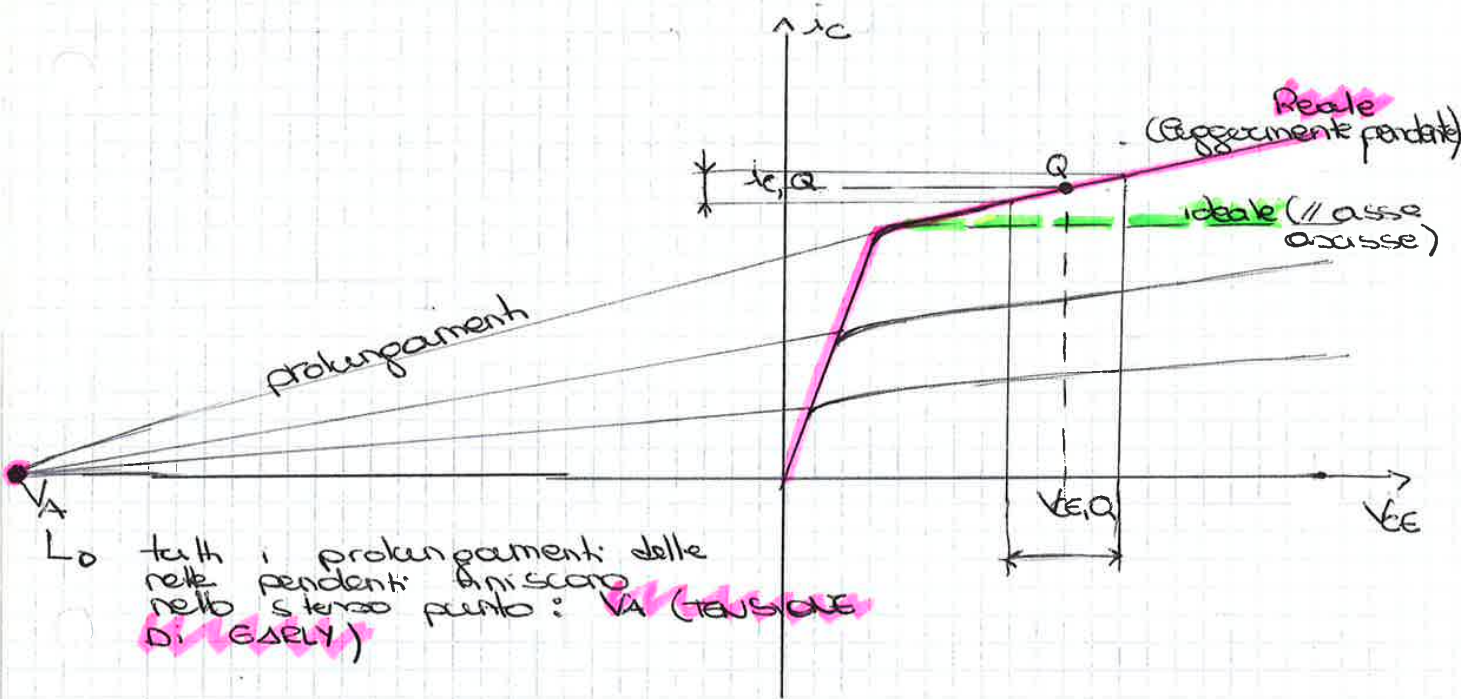 ic
Reale
(leggermente pendente)
Q
ic,Q
ideale (// asse
ascisse)
prolungamenti
VA
VCE,Q
VCE
Lo tutti i prolungamenti delle
rette pendenti finiscono
nello stesso punto: VA (TENSIONE
Di EARLY)